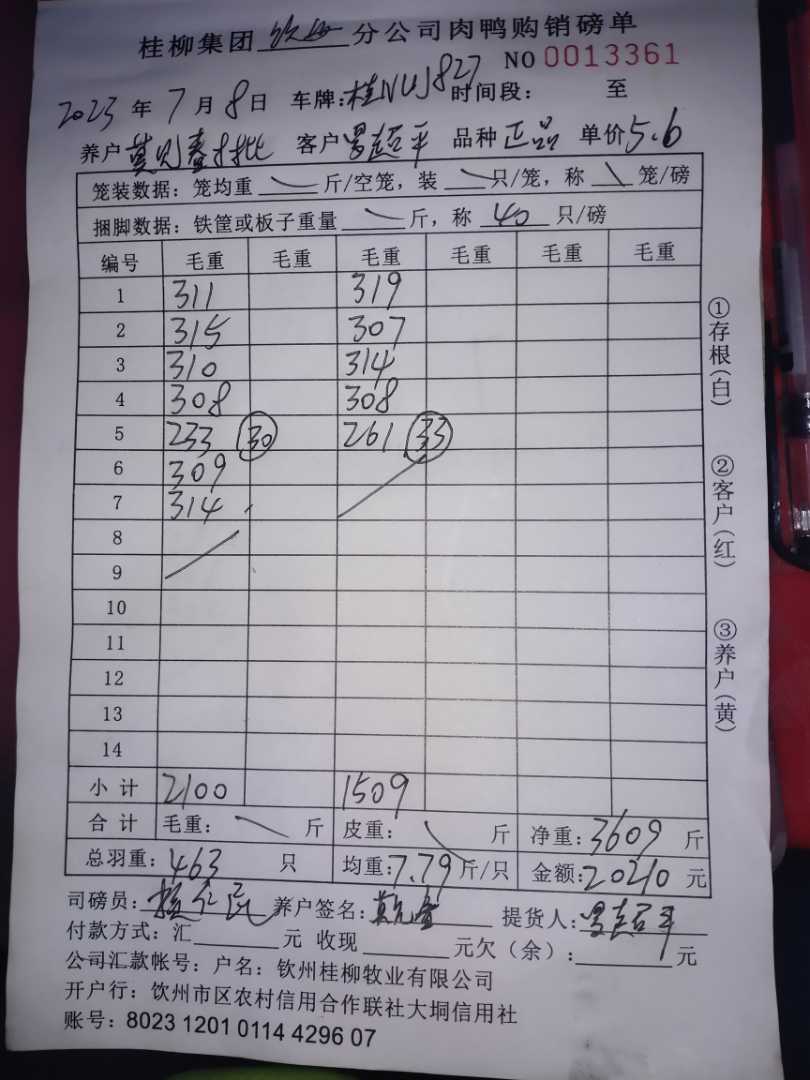 桂柳集团 钦州 分公司肉鸭购销磅单
NO 0013361
2023年7月8日 车牌:桂NUJ827 时间段: 至
养户 客户 品种 正品 单价5.6
笼装数据:笼均重 斤/空笼,装 只/笼,称 笼/磅
捆脚数据:铁筐或板子重量 斤,称 40 只/磅
编号 毛重 毛重 毛重 毛重 毛重 毛重
1 311 319
2 315 307
3 310 314
4 308 308
5 233 30 261 33
6 309
7 314
8
9
10
11
12
13
14
小计 2100 1509
合计 毛重: 斤 皮重: 斤 净重:3609 斤
总羽重:463 只 均重:7.79 斤/只 金额:20210 元
司磅员: 养户签名: 提货人:
付款方式:汇 元 收现 元欠(余): 元
公司汇款帐号:户名:钦州桂柳牧业有限公司
开户行:钦州市区农村信用合作联社大垌信用社
账号:8023 1201 0114 4296 07
①存根(白)
②客户(红)
③养户(黄)